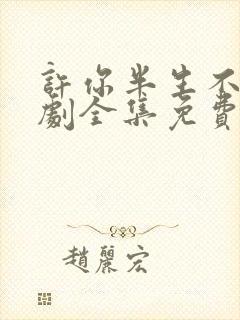 許你半生不
劇全集免費
趙麗宏